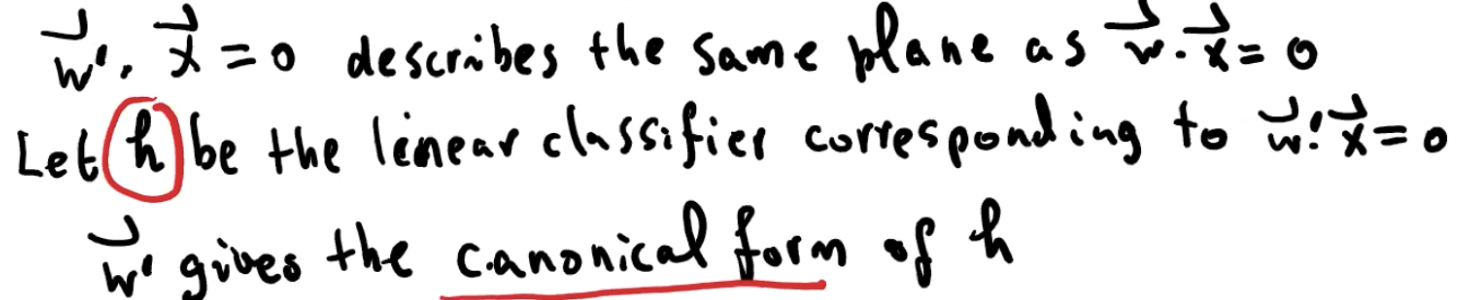 w⃗'. x⃗ = 0 describes the same plane as w⃗. x⃗ = 0
Let h be the linear classifier corresponding to w⃗'. x⃗ = 0
w⃗' gives the canonical form of h